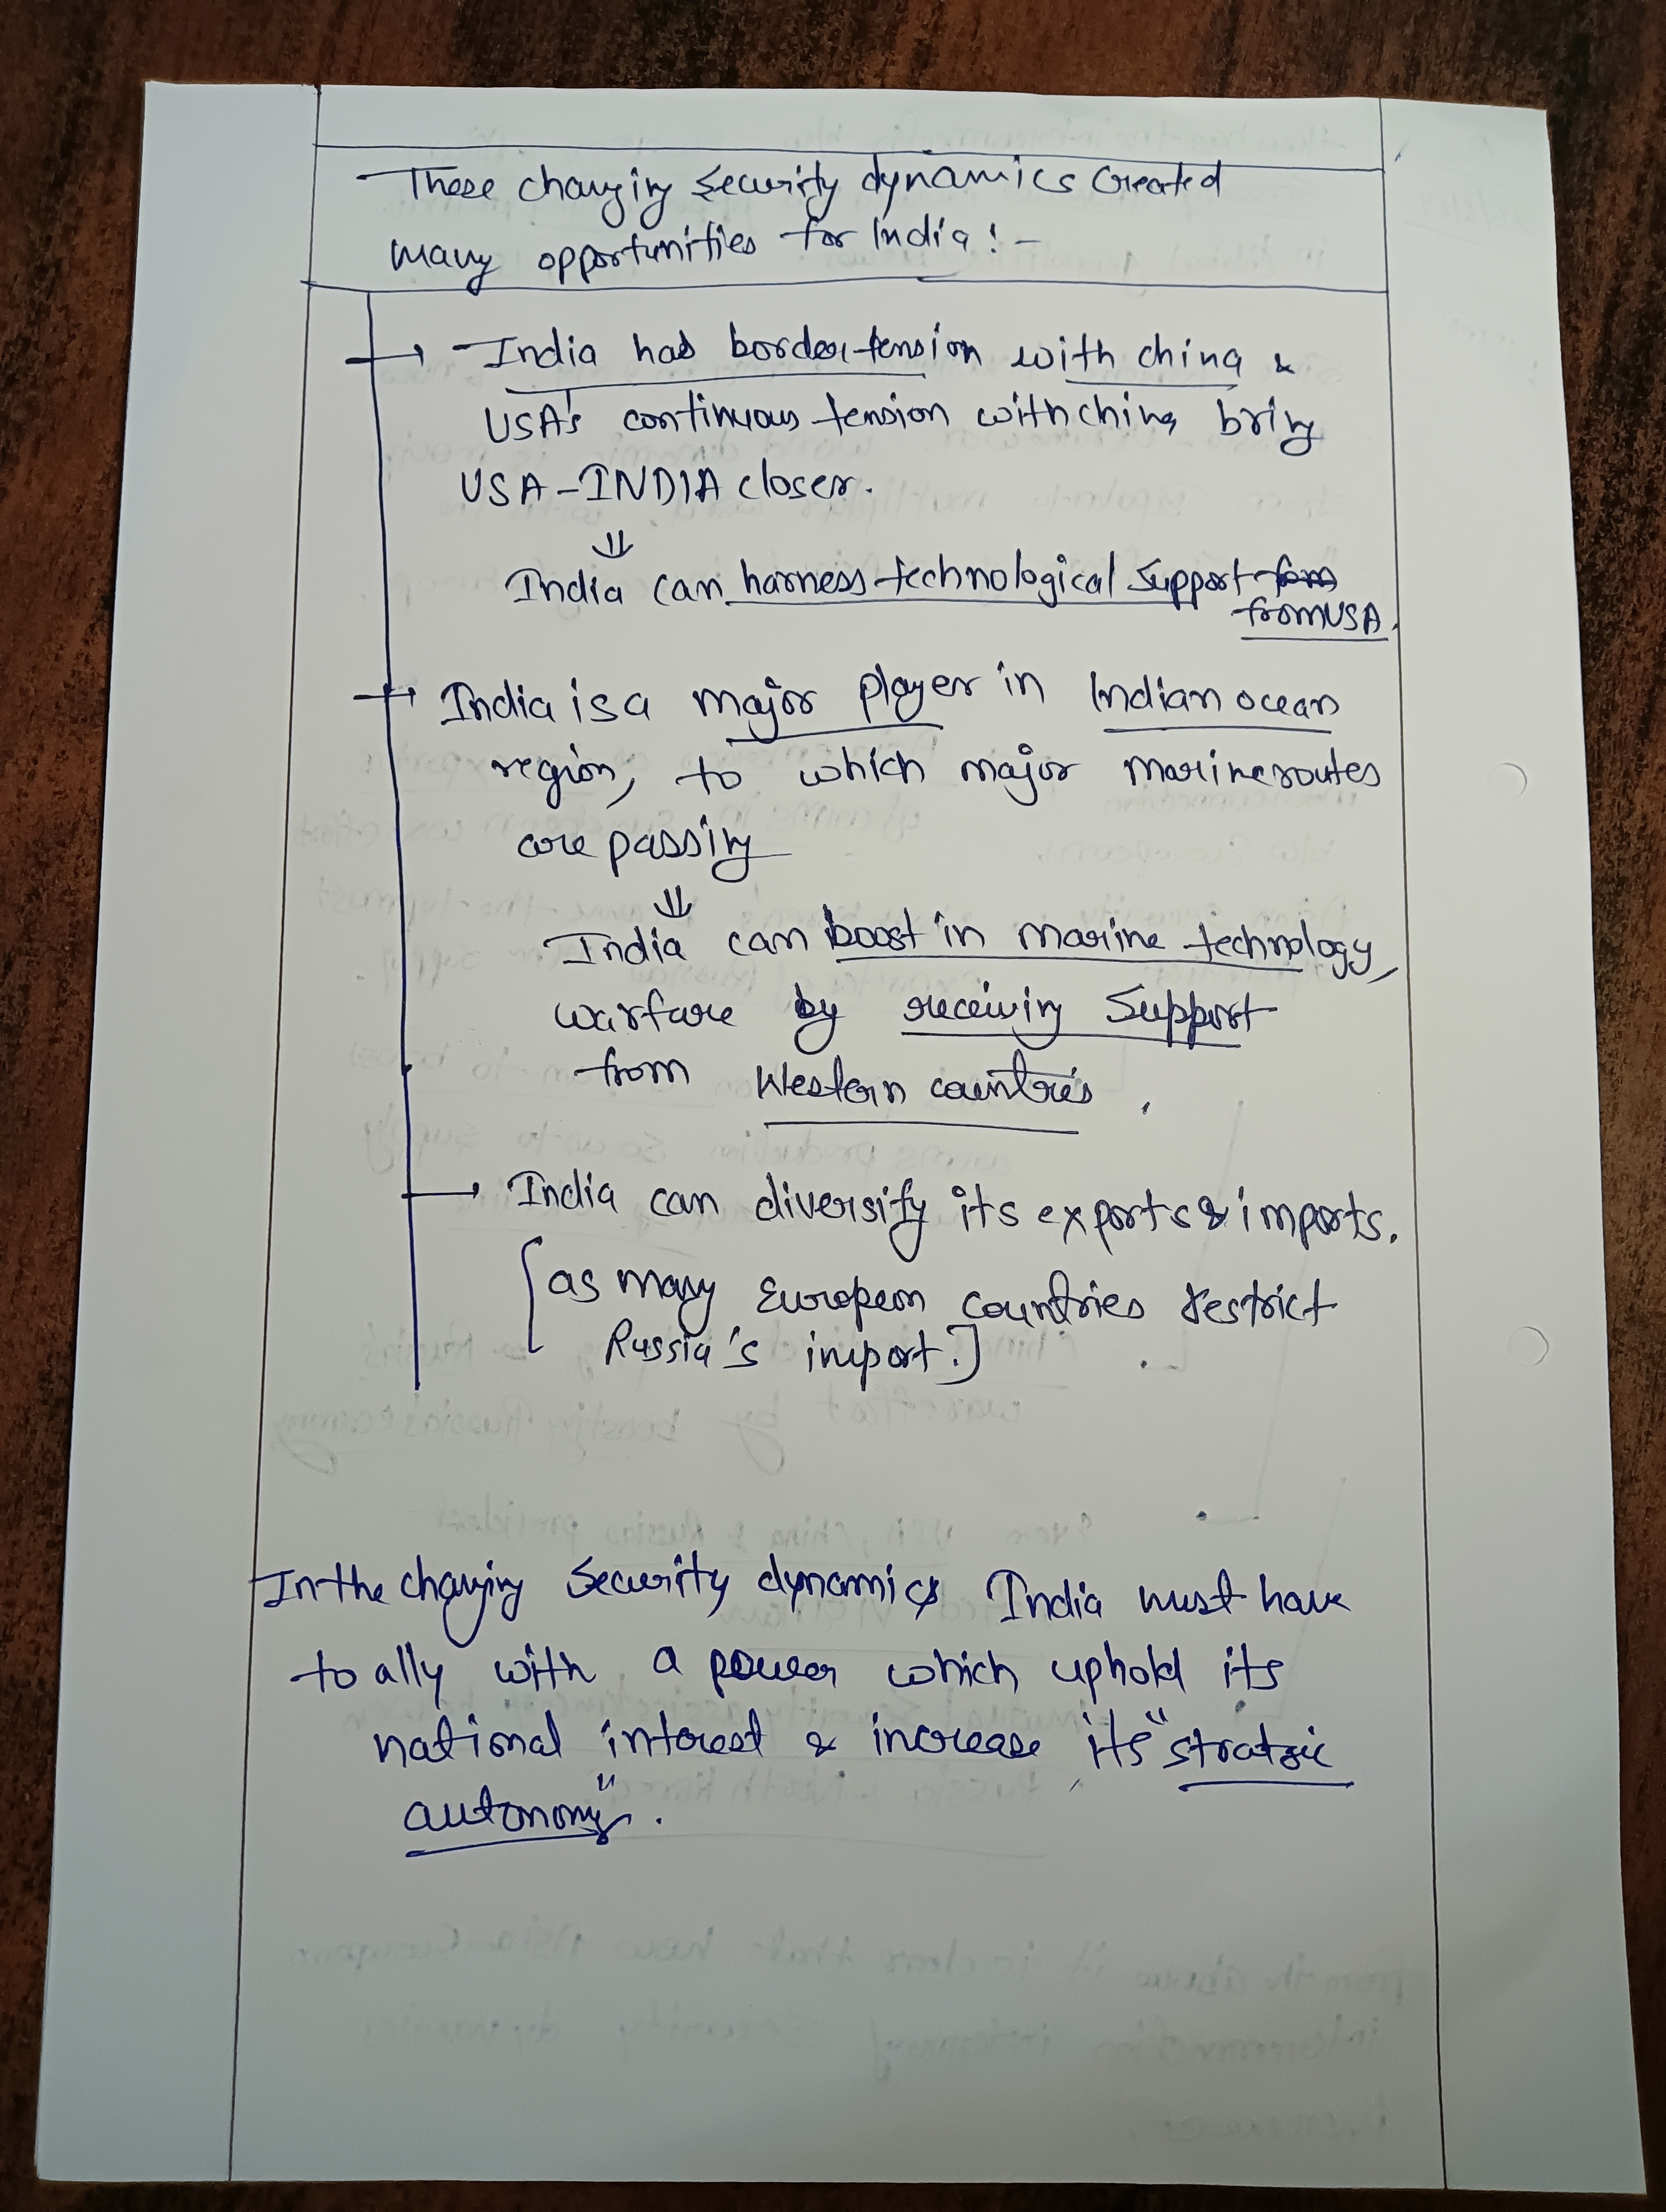 These changing security dynamics created
many opportunities for India! -
India has border tension with china &
USA's continuous tension with china bring
USA-INDIA closer.
⇓
India can harness technological support
from USA.
India is a major player in Indian ocean
region, to which major marine routes
are passing
⇓
India can boost in marine technology,
warfare by receiving support
from Western countries.
India can diversify its exports & imports.
[as many European countries restrict
Russia's import.]
In the changing security dynamics India must have
to ally with a power which uphold its
national interest & increase its "stratgic
autonomy".